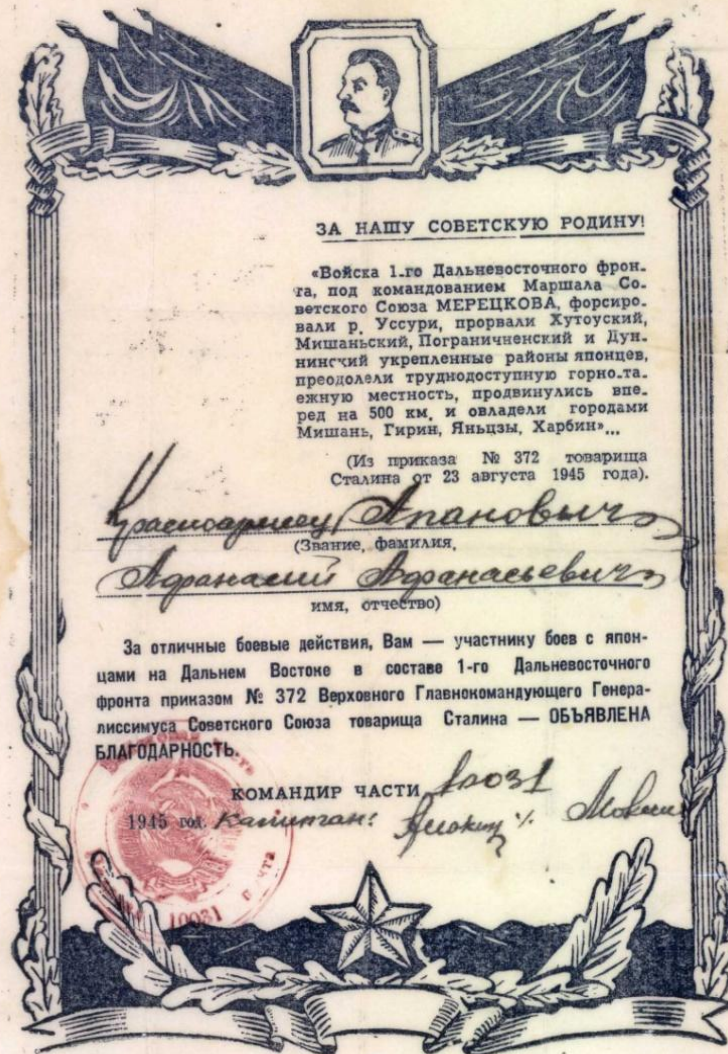 ЗА НАШУ СОВЕТСКУЮ РОДИНУ!
«Войска 1-го Дальневосточного фрон-
та, под командованием Маршала Со-
ветского Союза МЕРЕЦКОВА, форсиро-
вали р. Уссури, прорвали Хутоуский,
Мишаньский, Пограничненский и Дун-
нинский укрепленные районы японцев,
преодолели труднодоступную горно-та-
ежную местность, продвинулись впе-
ред на 500 км, и овладели городами
Мишань, Гирин, Яньцзы, Харбин»...
(Из приказа № 372 товарища
Сталина от 23 августа 1945 года).
Красноармеец Апанович
(Звание, фамилия,
Афанасий Афанасьевич
имя, отчество)
За отличные боевые действия, Вам — участнику боев с япон-
цами на Дальнем Востоке в составе 1-го Дальневосточного
фронта приказом № 372 Верховного Главнокомандующего Генера-
лиссимуса Советского Союза товарища Сталина — ОБЪЯВЛЕНА
БЛАГОДАРНОСТЬ.
КОМАНДИР ЧАСТИ 10031
1945 год. Капитан:
10031